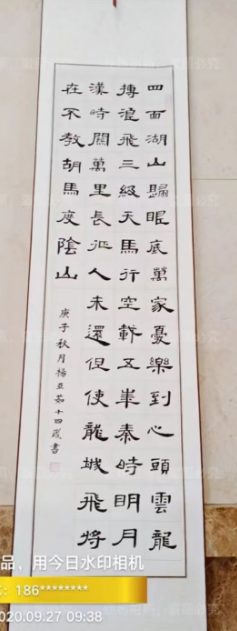 四面湖山歸眼底萬家憂樂到心頭雲龍
搏浪飛三級天馬行空載五車秦時明月
漢時關萬里長征人未還但使龍城飛將
在不教胡馬度陰山
庚子秋月楊亞茹十四歲書
品，用今日水印相机
: 186********
020.09.27 09:38